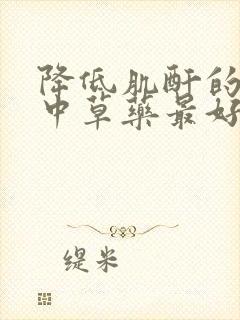 降低肌酐的
中草药最好
缇米